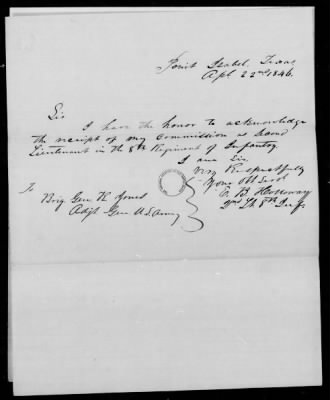 Point Isabel, Texas
Apl 22nd 1846.
Sir
I have the honor to acknowledge
the receipt of my Commission as Second
Lieutenant in the 8th Regiment of Infantry.
I am Sir,
Very Respectfully
Your Obt Servt
C. B. Holloway
2nd Lt 8th Infy
To
Brig Genl R Jones
Adjt Gen U.S. Army